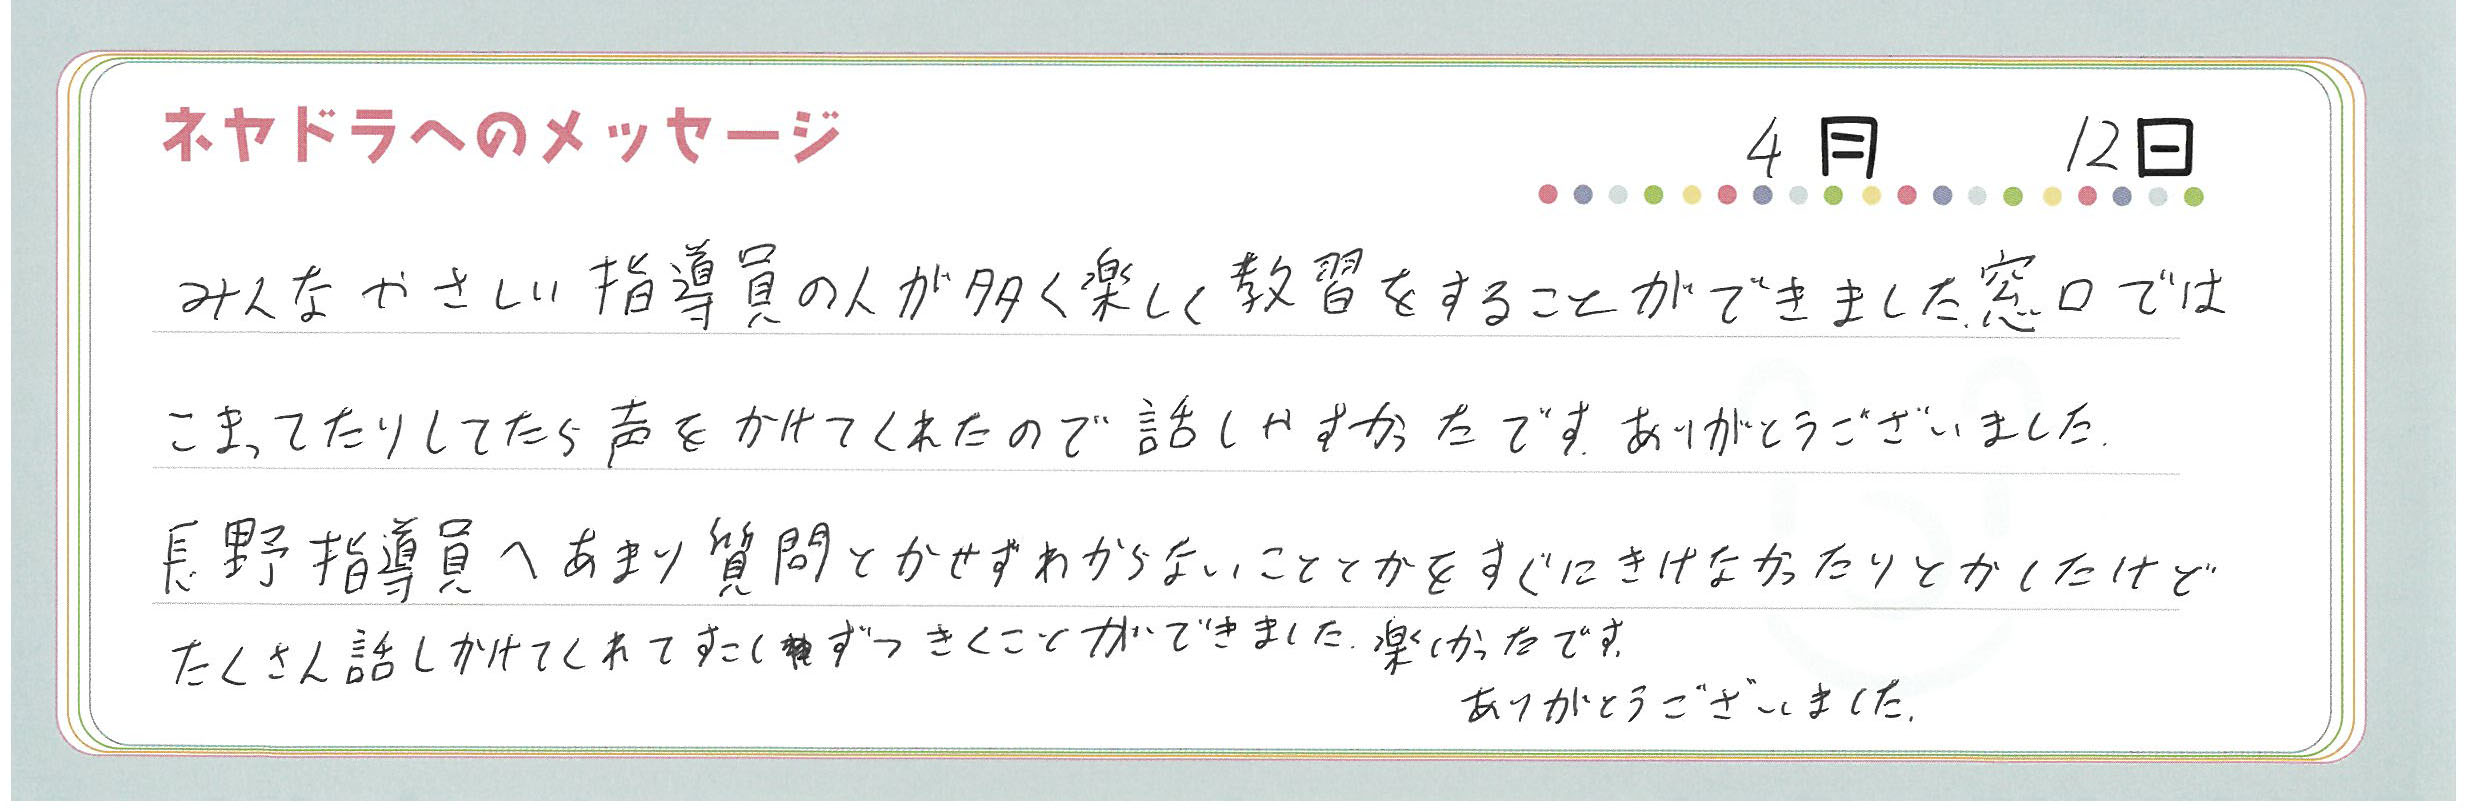 ネヤドラへのメッセージ
4月 12日
みんなやさしい指導員の人が多く楽しく教習をすることができました.窓口では
こまってたりしてたら声をかけてくれたので話しやすかったです.ありがとうございました.
長野指導員へあまり質問とかせずわからないこととかをすぐにきけなかったりとかしたけど
たくさん話しかけてくれてすこしずつきくことができました.楽しかったです.
ありがとうございました.